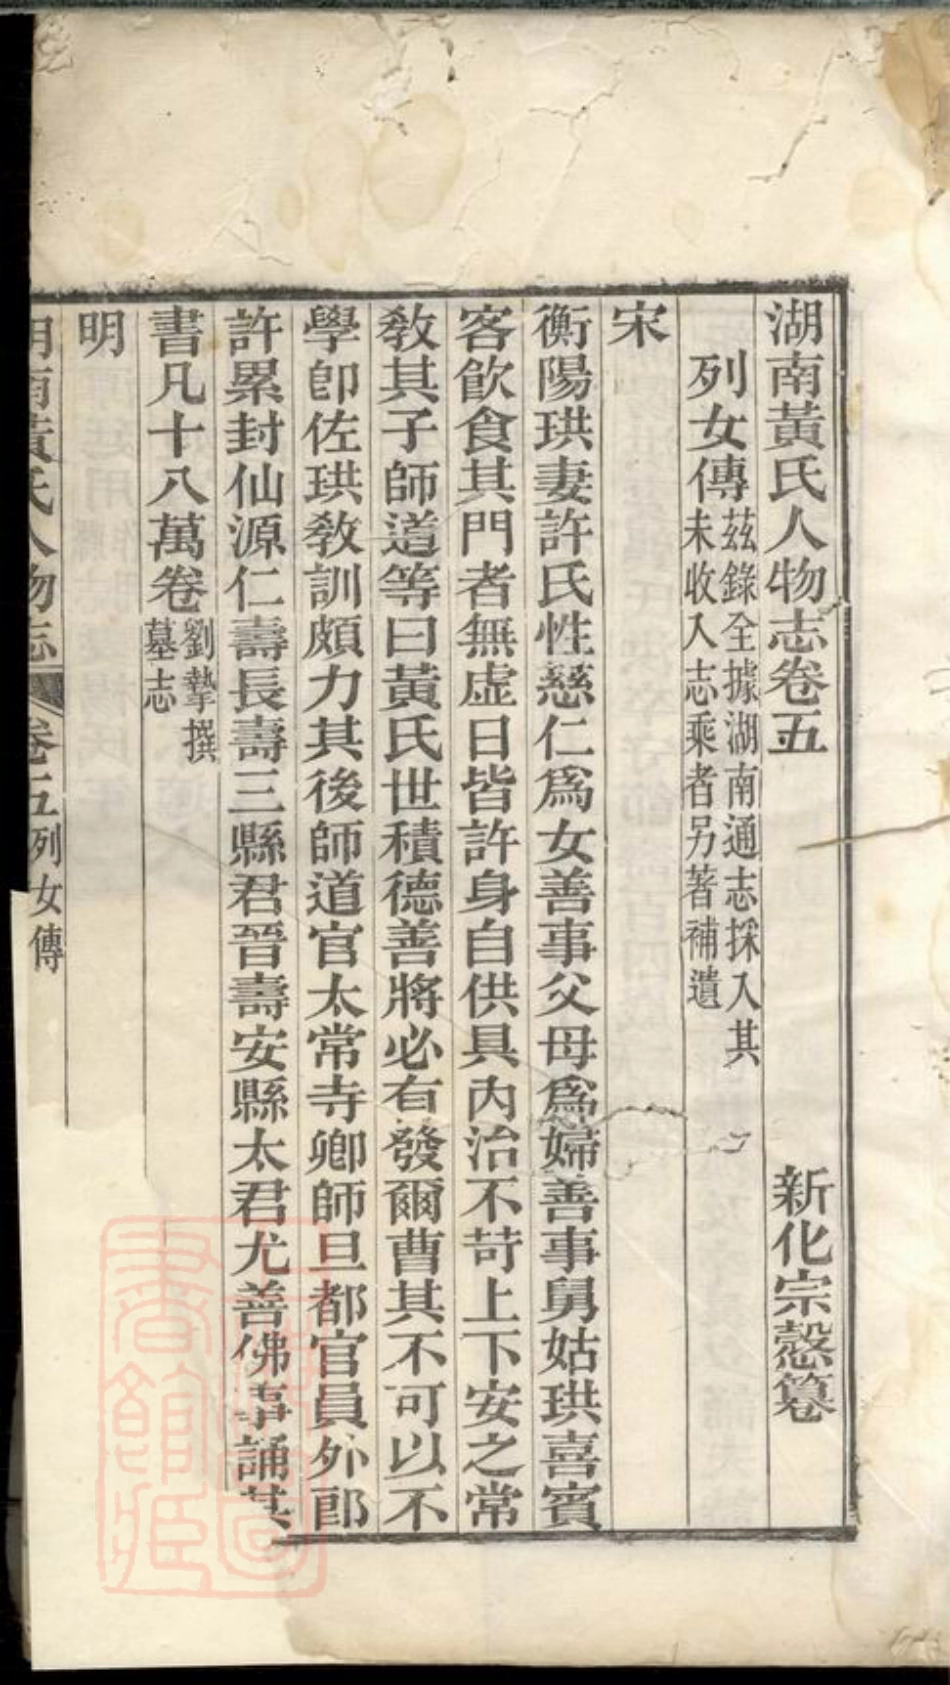 湖南黃氏人物志卷五 新化宗愨篹
列女傳
茲錄全據湖南通志採入其
未收入志乘者另著補遺
宋
衡陽珙妻許氏性慈仁爲女善事父母爲婦善事舅姑珙喜賓
客飲食其門者無虛日皆許身自供具內治不苛上下安之常
敎其子師道等曰黃氏世積德善將必有發爾曹其不可以不
學卽佐珙敎訓頗力其後師道官太常寺卿師旦都官員外郎
許累封仙源仁壽長壽三縣君晉壽安縣太君尤善佛事誦其
書凡十八萬卷
劉摯撰
墓志
明
湖南黃氏人物志 卷五列女傳